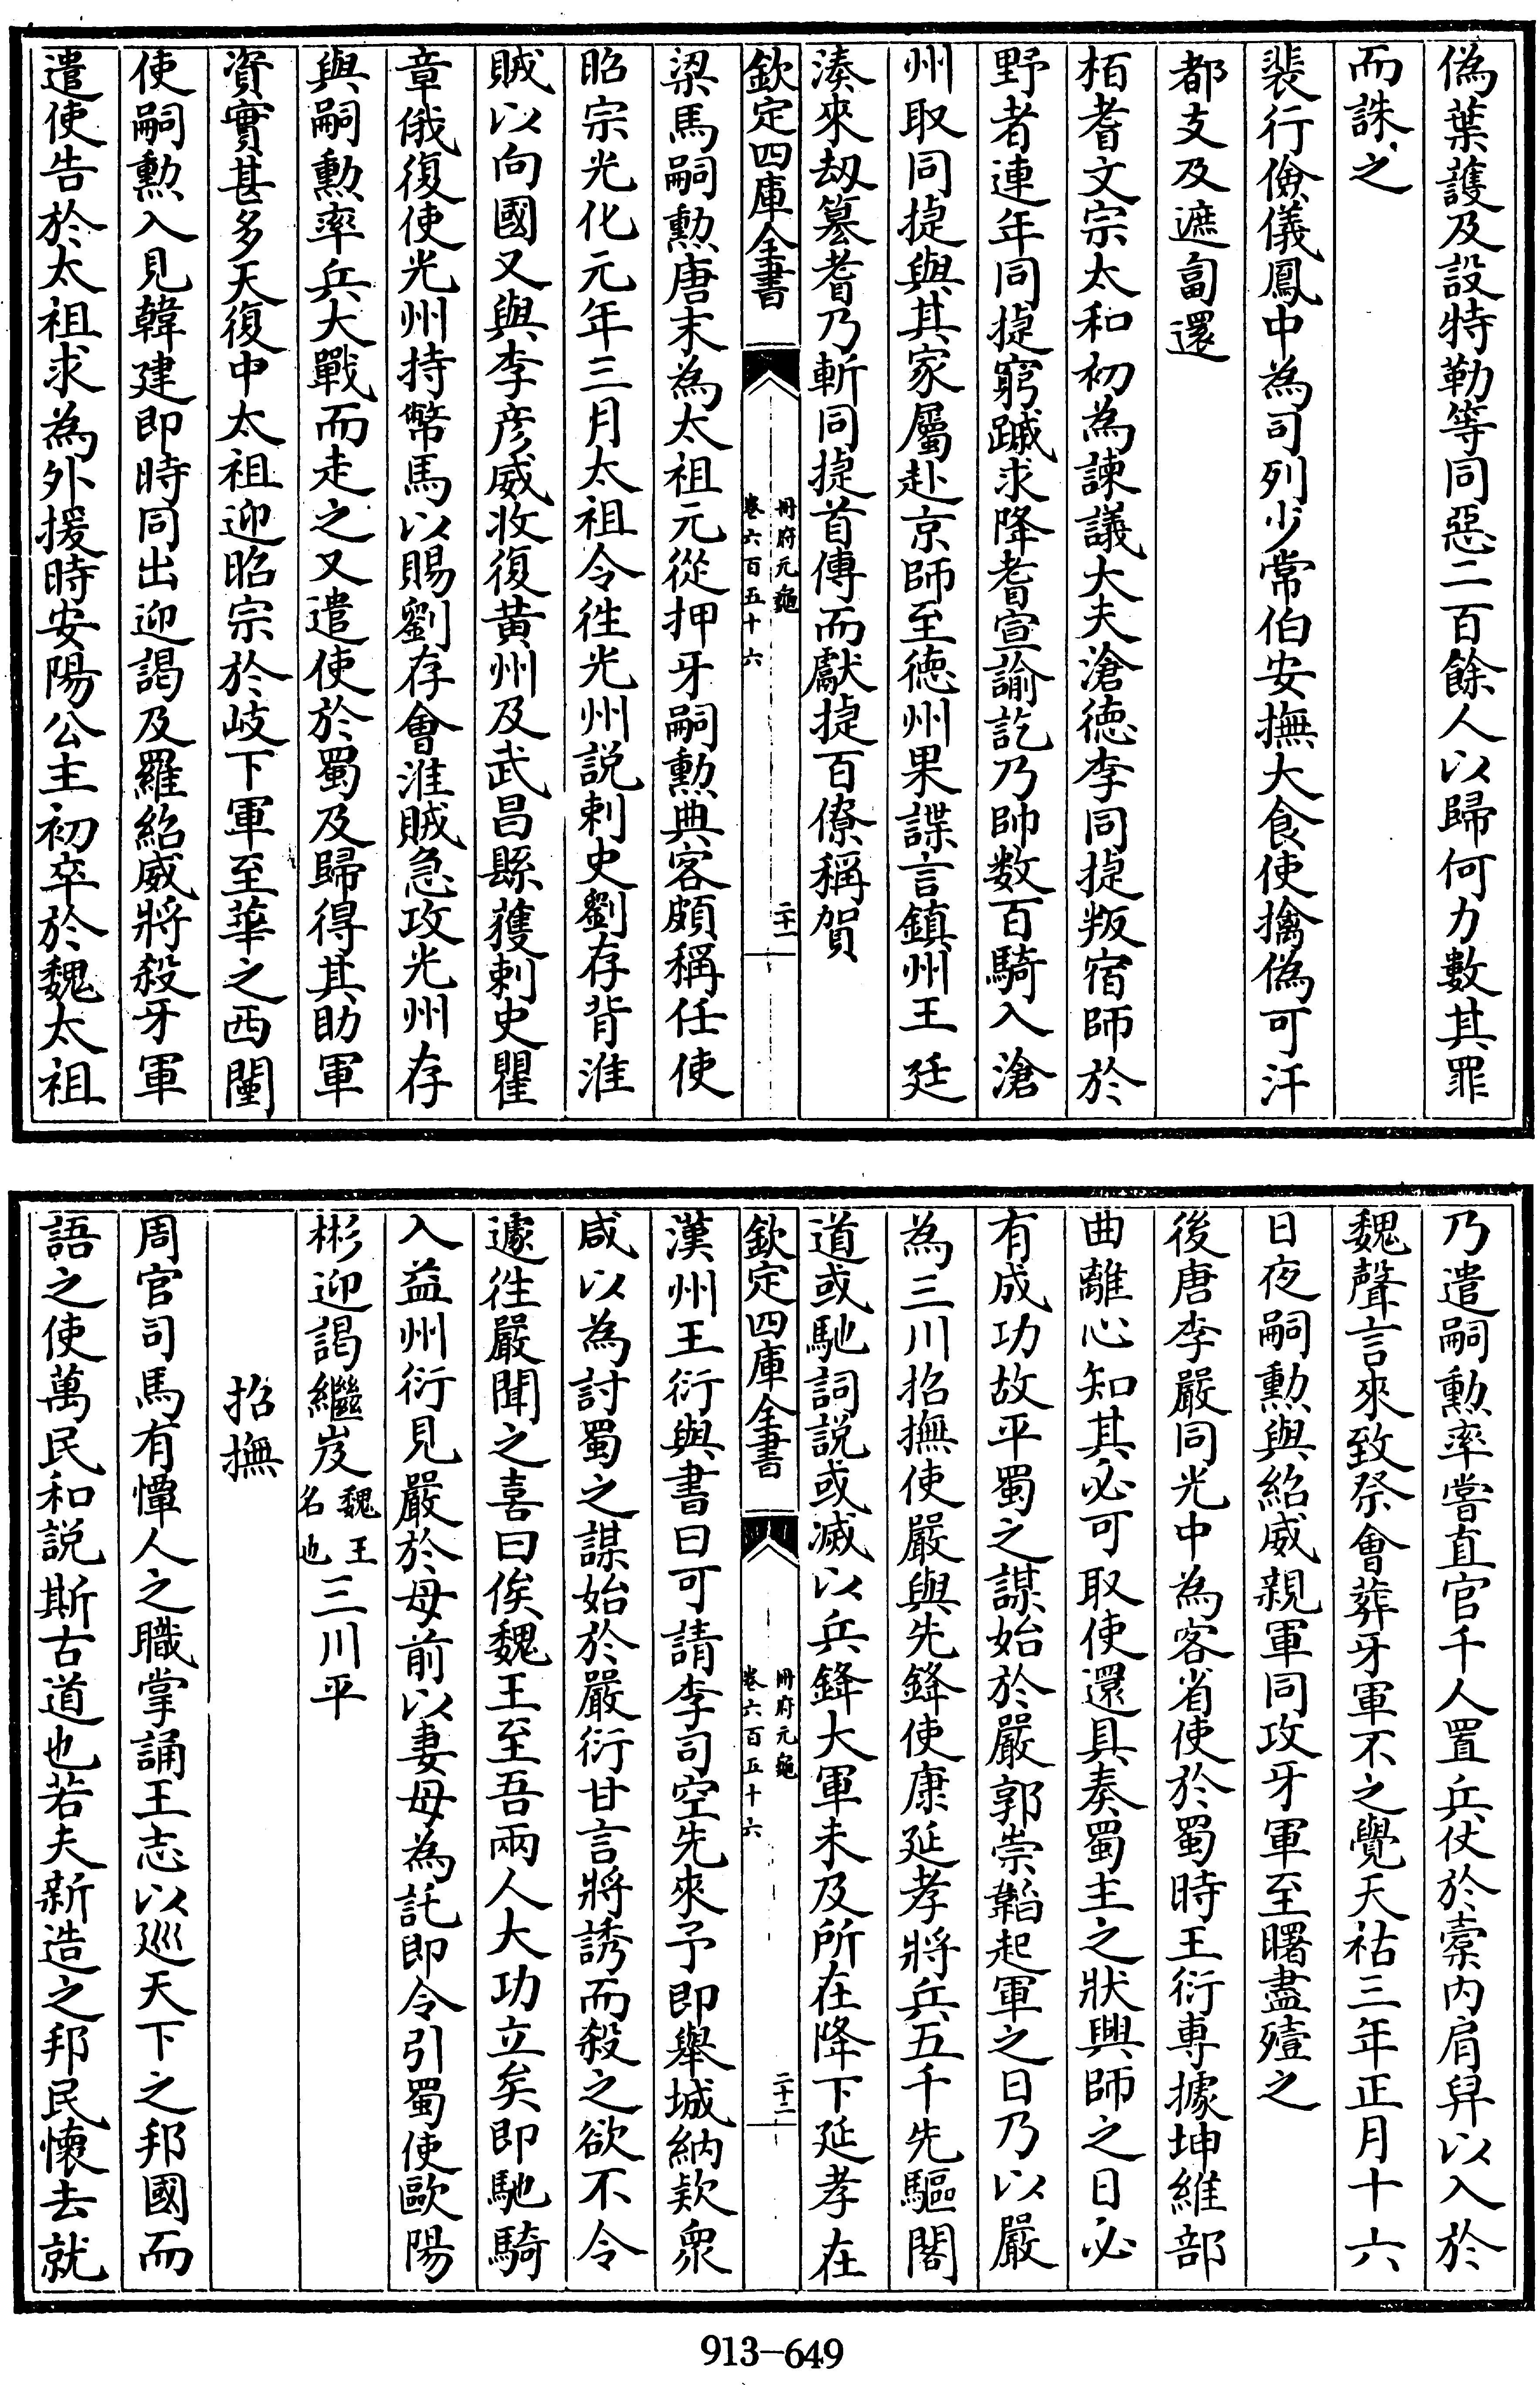 偽葉護及設特勒等同惡二百餘人以歸何力數其罪
而誅之
裴行儉儀鳳中為司列少常伯安撫大食使擒偽可汗
都支及遮匐還
栢耆文宗太和初為諫議大夫滄德李同捷叛宿師於
野者連年同捷窮蹙求降耆宣諭訖乃帥数百騎入滄
州取同捷與其家屬赴京師至德州果諜言鎮州王廷
湊來刼篡耆乃斬同捷首傳而獻捷百僚稱賀
欽定四庫全書
冊府元龜
卷六百五十六
二十一
梁馬嗣勲唐末為太祖元從押牙嗣勲典客頗稱任使
昭宗光化元年三月太祖令徃光州説刺史劉存背淮
賊以向國又與李彦威收復黄州及武昌縣獲刺史瞿
章俄復使光州持幣馬以賜劉存會淮賊急攻光州存
與嗣勲率兵大戰而走之又遣使於蜀及歸得其助軍
資實甚多天復中太祖迎昭宗於岐下軍至華之西闉
使嗣勲入見韓建即時同出迎謁及羅紹威將殺牙軍
遣使告於太祖求為外援時安陽公主初卒於魏太祖
乃遣嗣勲率嘗直官千人置兵仗於橐内肩舁以入於
魏聲言來致祭會葬牙軍不之覺天祐三年正月十六
日夜嗣勲與紹威親軍同攻牙軍至曙盡殪之
後唐李嚴同光中為客省使於蜀時王衍専據坤維部
曲離心知其必可取使還具奏蜀主之狀興師之日必
有成功故平蜀之謀始於嚴郭崇韜起軍之日乃以嚴
為三川招撫使嚴與先鋒使康延孝將兵五千先驅閣
道或馳詞説或滅以兵鋒大軍未及所在降下延孝在
欽定四庫全書
冊府元龜
卷六百五十六
二十二
漢州王衍與書曰可請李司空先來予即舉城納欵衆
咸以為討蜀之謀始於嚴衍甘言將誘而殺之欲不令
遽徃嚴聞之喜曰俟魏王至吾兩人大功立矣即馳騎
入益州衍見嚴於母前以妻母為託即令引蜀使歐陽
彬迎謁繼岌魏王名也三川平
招撫
周官司馬有憚人之職掌誦王志以廵天下之邦國而
語之使萬民和説斯古道也若夫新造之邦民懷去就
913-649